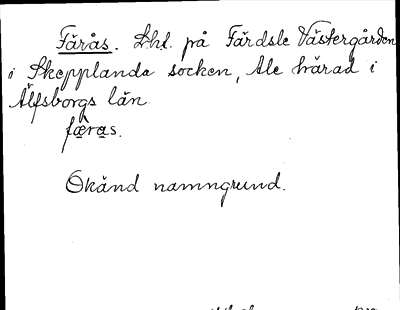 Fårås. Lht. på Färdsle Västergården
i Skepplanda socken, Ale härad i
Älfsborgs län.
Okänd namngrund.